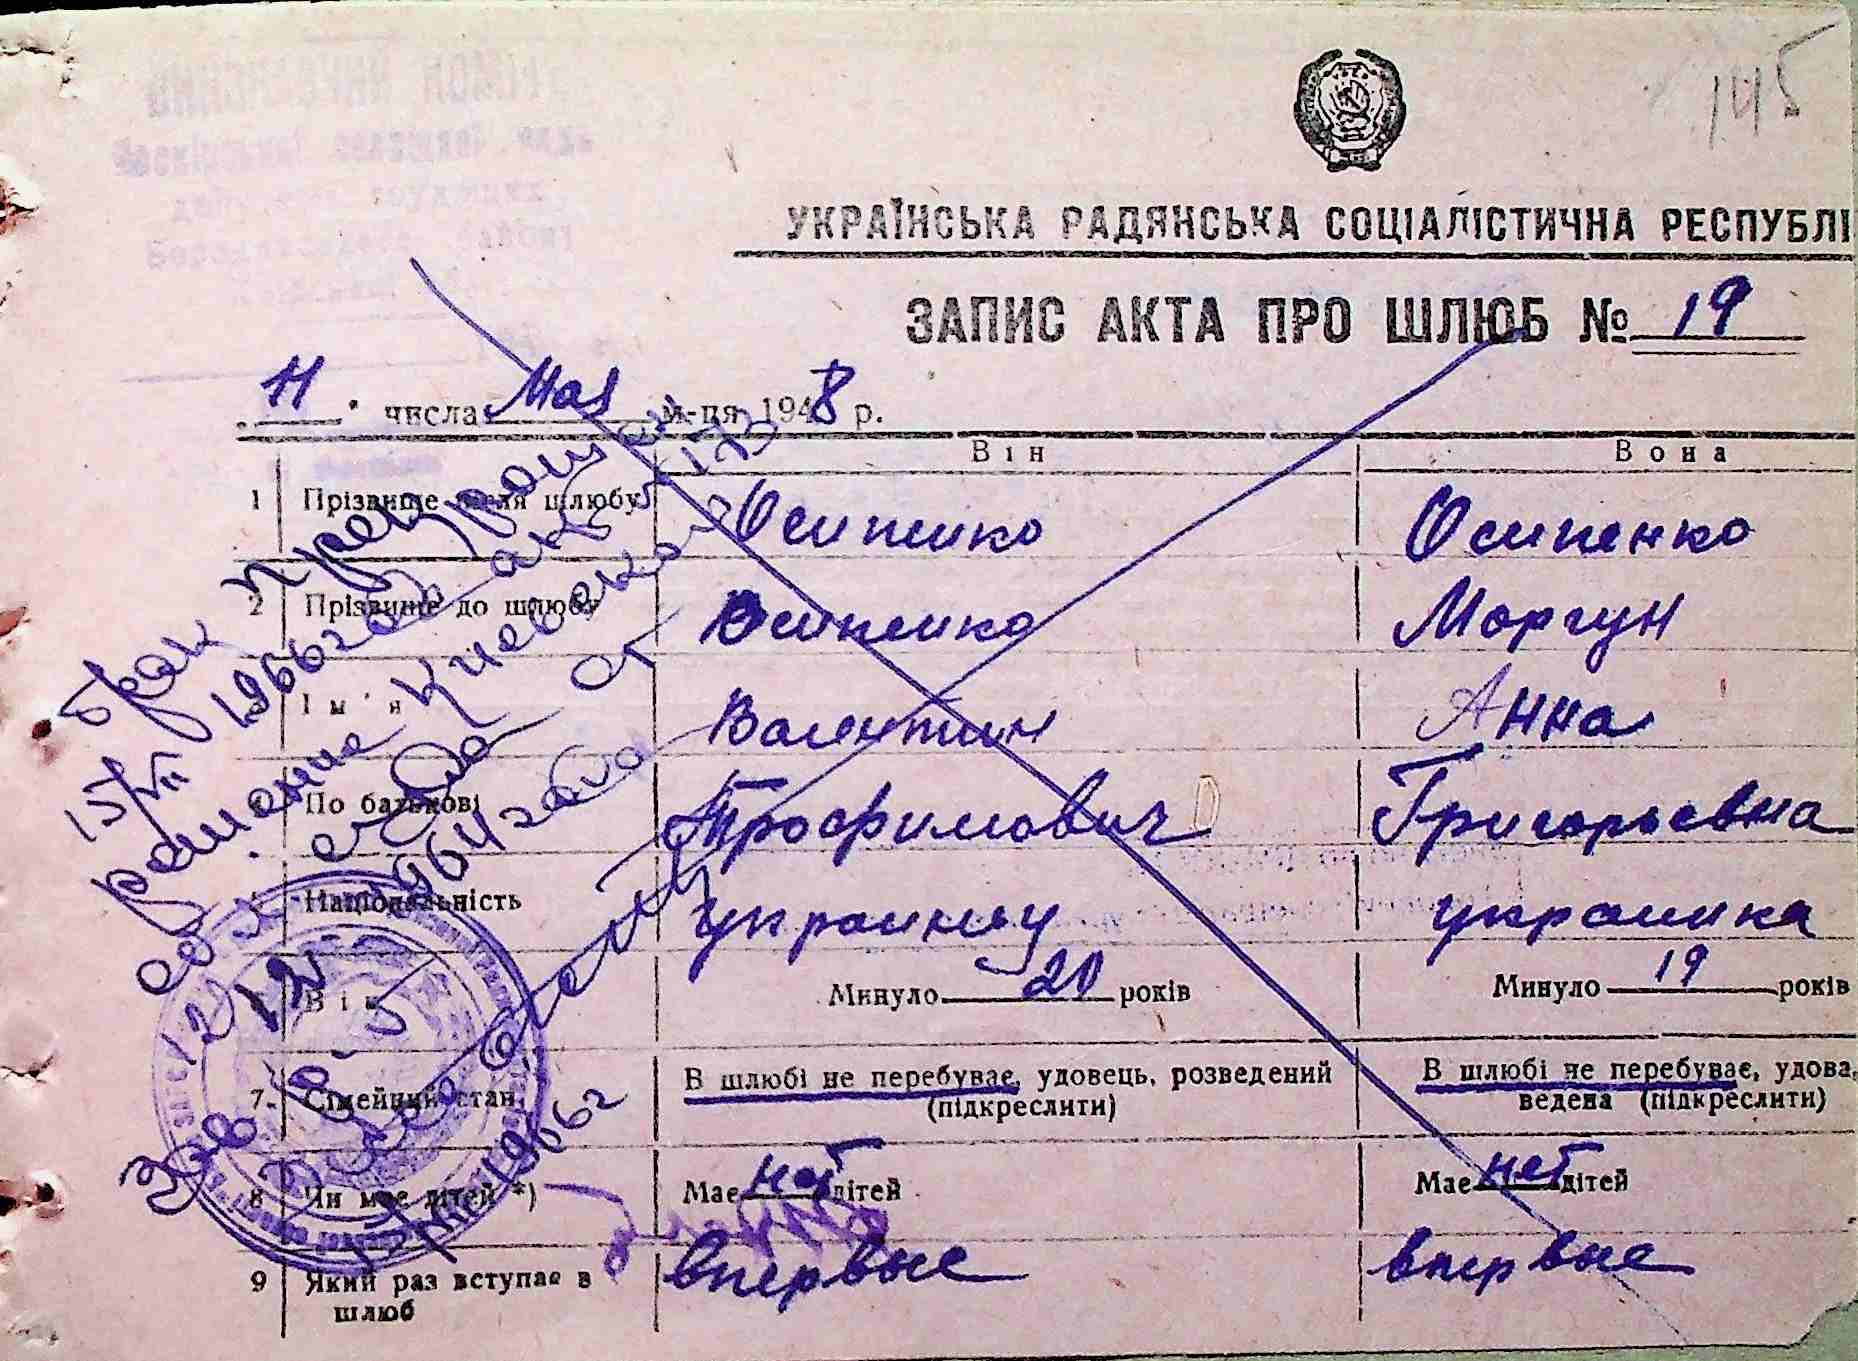 145
УКРАЇНСЬКА РАДЯНСЬКА СОЦІАЛІСТИЧНА РЕСПУБЛІ
ЗАПИС АКТА ПРО ШЛЮБ № 19
11 числа Мая м-ця 1948 р.
Він Вона
1 Прізвище після шлюбу Осипенко Осипенко
2 Прізвище до шлюбу Осипенко Моргун
3 Ім'я Валентин Анна
4 По батькові Трофимович Григорьевна
5 Національність Украинец украинка
6 Вік Минуло 20 років Минуло 19 років
7. Сімейний стан. В шлюбі не перебуває, удовець, розведений (підкреслити) В шлюбі не перебуває, удова, ведена (підкреслити)
8 Чи має дітей *) Має нет дітей Має нет дітей
9 Який раз вступає в шлюб впервые впервые
брак прекращен
15/VII 1966 года акт 173
решение Киевского
обл суда от
12/12 1964 года
Зав
1966г